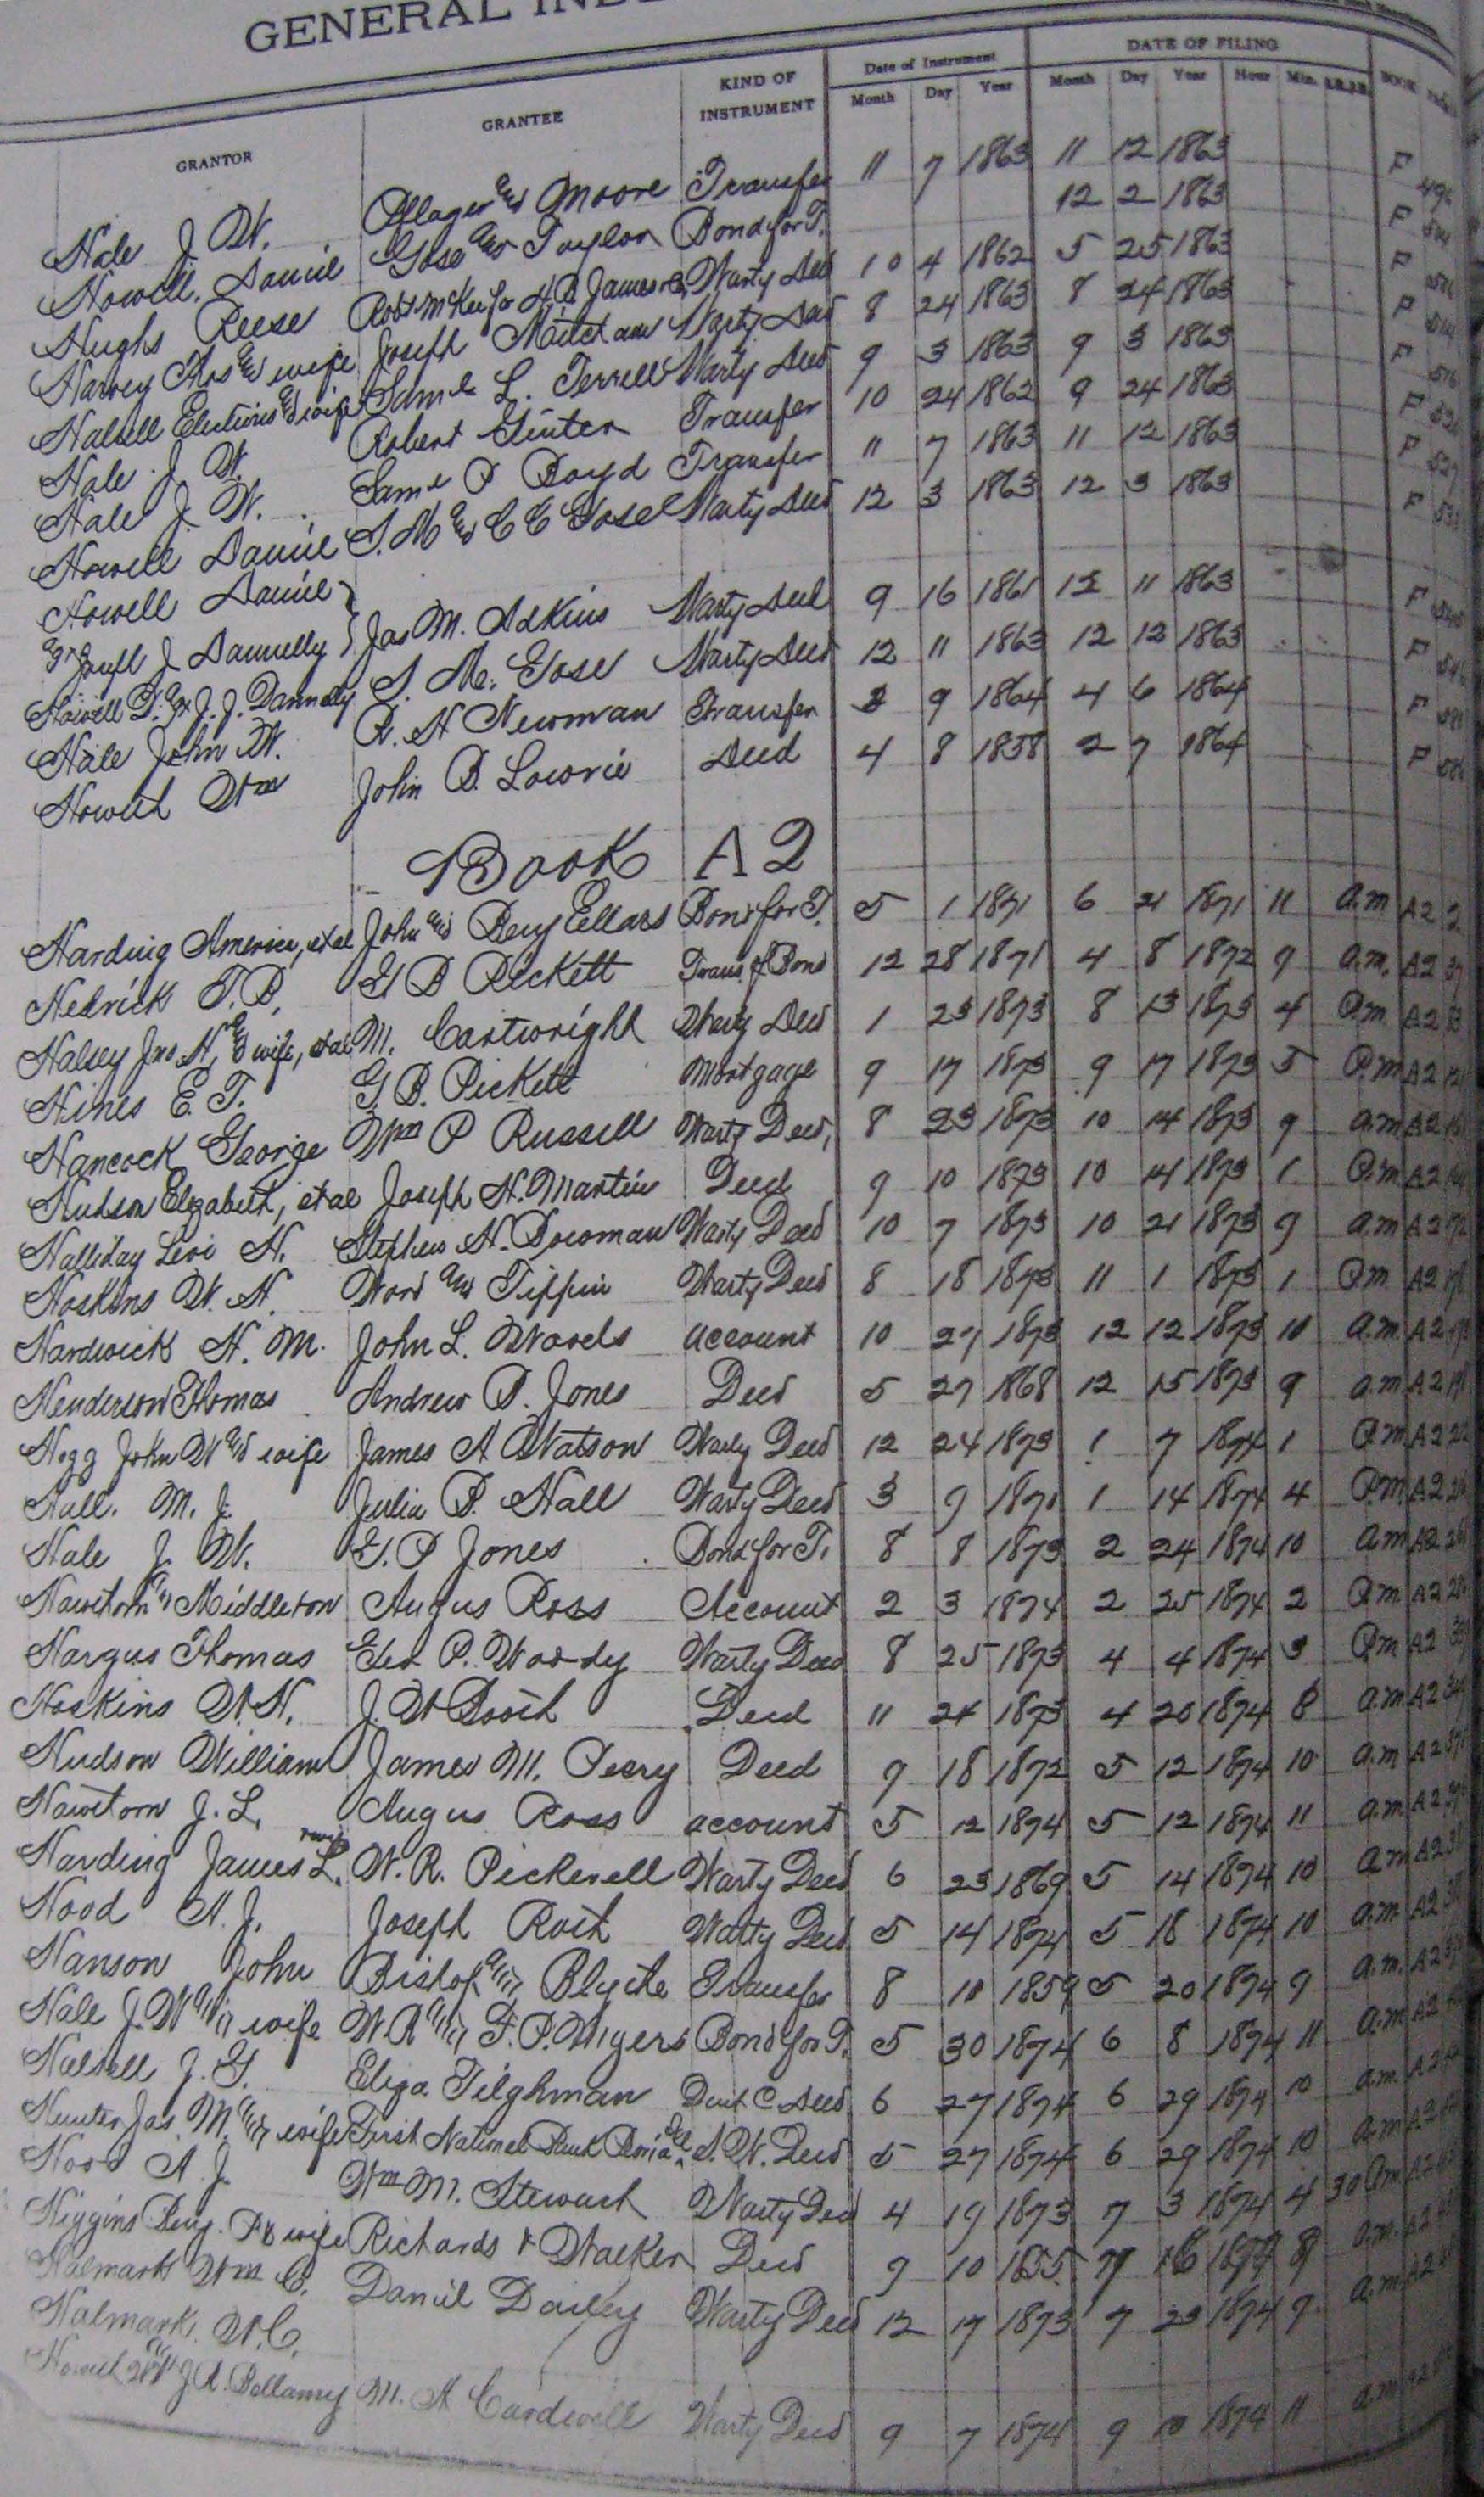 GENERAL
GRANTOR GRANTEE KIND OF INSTRUMENT Date of Instrument Month Day Year DATE OF FILING Month Day Year Hour Min. BOOK
Hale J. W. and Moore Transfer 11 7 1863 11 12 1863 F
Howell, Daniel Gose and Taylor Bond for T. 12 2 1863 F
Hughs Reese Warty Deed 10 4 1862 5 25 1863 F
Harvey Thos and wife Joseph Warty Deed 8 24 1863 8 24 1863 F
Halsell and wife L. Terrell Warty Deed 9 3 1863 9 3 1863 F
Hale J. W. Robert Ginter Transfer 10 24 1862 9 24 1863 F
Hale J. W. P Boyd Transfer 11 7 1863 11 12 1863 F
Howell Daniel S. M and C C Gose Warty Deed 12 3 1863 12 3 1863 F
Howell Daniel
J Dannelly Jas M. Adkins Warty Deed 9 16 1861 12 11 1863 F
Howell D. J. J. Dannelly S. M. Gose Warty Deed 12 11 1863 12 12 1863 F
Hale John W. R. H Newman Transfer 9 1864 4 6 1864 F
Wm John B. Lowrie Deed 4 8 1858 2 7 1864 F
Book A 2
Harding America, et al John and Benj Ellars Bond for T. 5 1 1871 6 21 1871 11 a.m A2
Hedrick T. B. G B Pickett Trans. of Bond 12 28 1871 4 8 1872 9 a.m. A2
Halsey Jno H, & wife, et al M. Cartwright Warty Deed 1 23 1873 8 13 1873 4 P.m A2
Hines E. T. G. B. Pickett Mortgage 9 17 1873 9 17 1873 5 P.m A2
Hancock George Wm P Russell Warty Deed, 8 23 1873 10 14 1873 9 a.m A2
Hudson Elizabeth, et al Joseph H. Martin Deed 9 10 1873 10 14 1873 1 P.m A2
Halliday Levi H. Stephen H. Bowman Warty Deed 10 7 1873 10 21 1873 9 a.m A2
Hoskins W. H. Word and Tippin Warty Deed 8 18 1873 11 1 1873 1 P.m A2
Hardwick H. M. John L. Wards account 10 27 1873 12 12 1873 10 a.m. A2
Henderson Thomas Andrew B. Jones Deed 5 27 1868 12 15 1873 9 a.m A2
Hogg John W and wife James A Watson Warty Deed 12 24 1873 1 7 1874 1 P.m A2
Hall. M. J. Julia B. Hall Warty Deed 3 9 1870 1 14 1874 4 P.m. A2
Hale J. W. G. P Jones Bond for T. 8 8 1873 2 24 1874 10 a.m A2
Hawthorn & Middleton Angus Ross Account 2 3 1874 2 25 1874 2 P.m A2
Hargus Thomas Geo P. Woody Warty Deed 8 25 1873 4 4 1874 3 P.m A2
Hoskins W. H. J. W Booth Deed 11 24 1873 4 20 1874 8 a.m. A2
Hudson William James M. Peery Deed 9 18 1872 5 12 1874 10 a.m A2
J. L. Angus Ross account 5 12 1874 5 12 1874 11 a.m A2
Harding James L. W. R. Pickerell Warty Deed 6 23 1869 5 14 1874 10 a.m A2
Hood A. J. Joseph Roth Warty Deed 5 14 1874 5 18 1874 10 a.m A2
Hanson John Bishop and Blythe Transfer 8 10 1859 5 20 1874 9 a.m. A2
Hale J. W and wife W. R and F. P. Myers Bond for T. 5 30 1874 6 8 1874 11 a.m A2
Halsell J. G. Eliza Tilghman Deed 6 27 1874 6 29 1874 10 a.m A2
Hunter Jas. M. and wife First National Bank S. W. Deed 5 27 1874 6 29 1874 10 a.m A2
Hood A J. Wm M. Stewart Warty Deed 4 19 1873 7 3 1874 4 30 P.m A2
Higgins Benj. P & wife Richards & Walker Deed 9 10 1855 7 16 8 a.m. A2
Halmark Wm C. Daniel Dailey Warty Deed 12 17 1873 7 23 1874 9 a.m A2
Halmark. W. C.
J. A. Bellamy M. A Cardwell Warty Deed 9 7 1874 9 10 1874 11 a.m A2